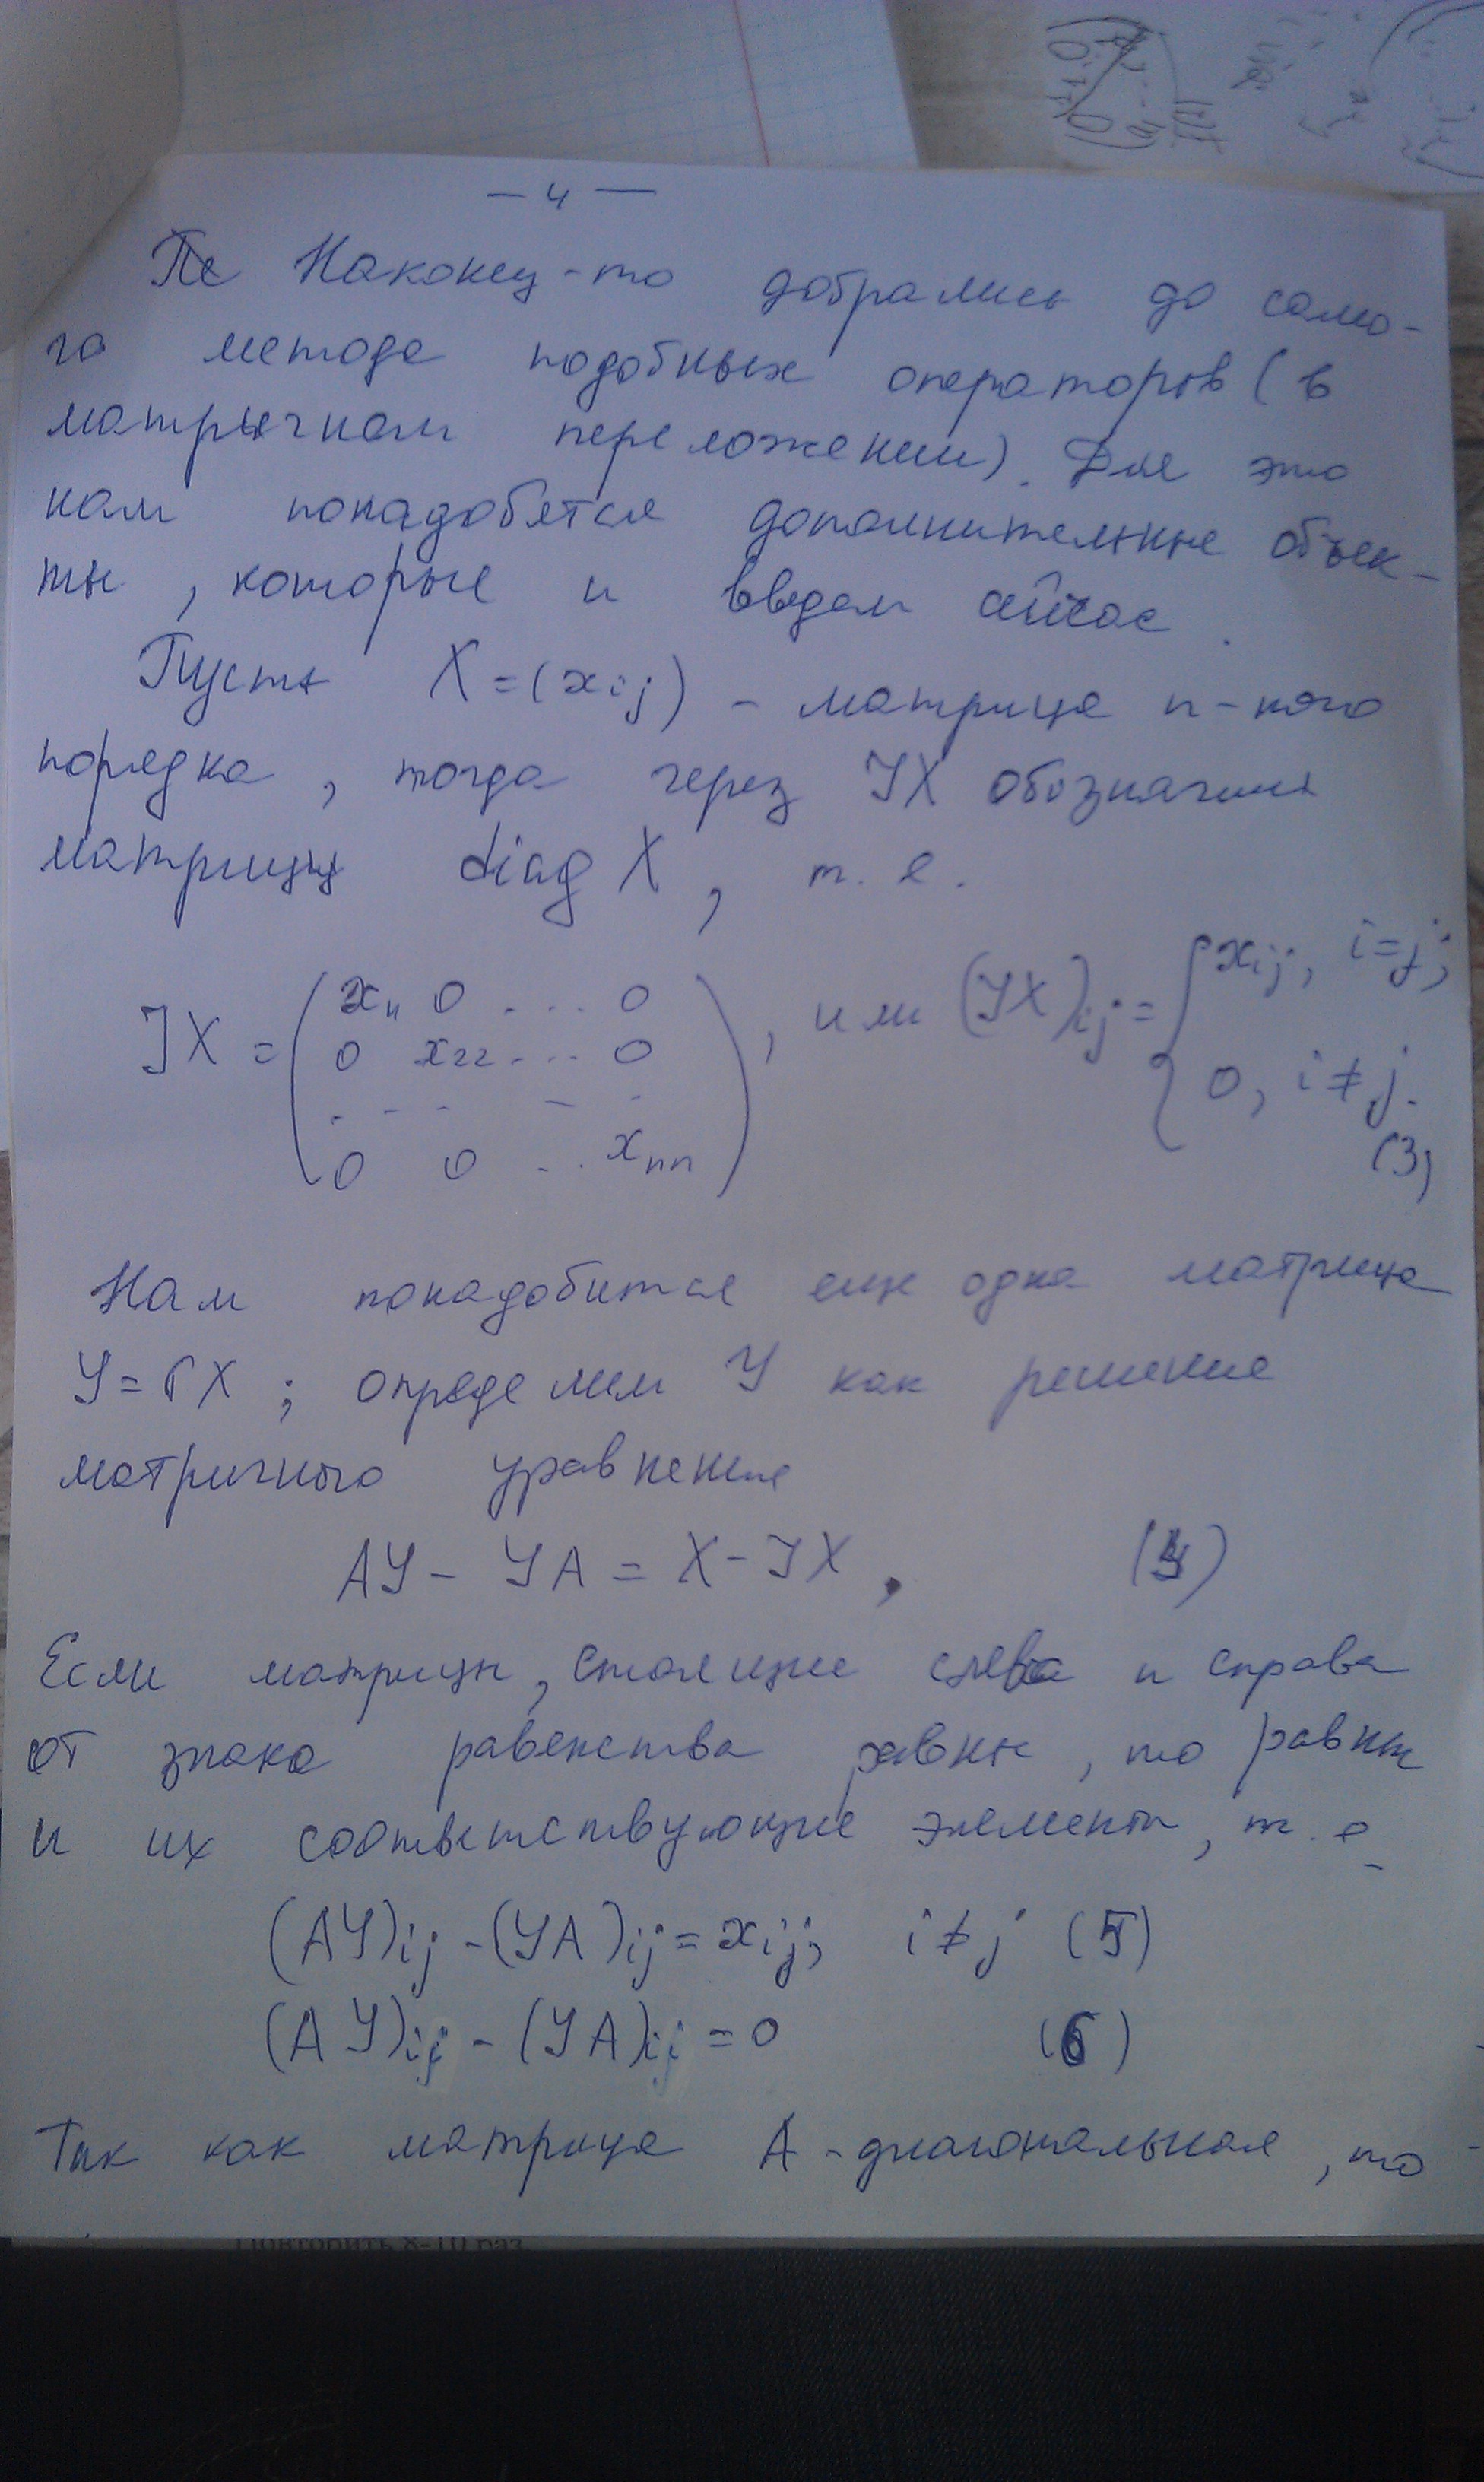 — 4 —
Наконец-то добрались до само-
го метода подобных операторов (в
матричном переложении). Для это
нам понадобятся дополнительные объек-
ты, которые и введем сейчас.
Пусть X = (xij) - матрица n-ного
порядка, тогда через JX обозначим
матрицу diag X, т. е.
JX = ( x11 0 ... 0
0 x22 ... 0
. - - - .
0 0 ... xnn ) , или (JX)ij = { xij, i=j;
0, i≠j.
(3)
Нам понадобится еще одна матрица
Y = ΓX ; определим Y как решение
матричного уравнения
AY - YA = X - JX , (4)
Если матрицы, стоящие слева и справа
от знака равенства равны, то равны
и их соответствующие элементы, т. е.
(AY)ij - (YA)ij = xij, i≠j (5)
(AY)ij - (YA)ij = 0 (6)
Так как матрица A - диагональная, то
Повторить 8-10 раз